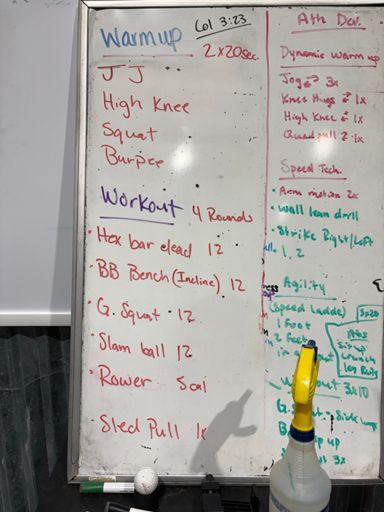 Warmup
Col 3:23
2x20sec
JJ
High Knee
Squat
Burpee
Workout 4 Rounds
Hex bar dead 12
BB Bench (Incline) 12
G. Squat 12
Slam ball 12
Rower 5cal
Sled Pull 1x
Ath Dev.
Dynamic warm up
Jog 3x
Knee Hugs 1x
High Knee 1x
Quad pull 1x
Speed Tech.
Arm motion 2x
Wall lean drill
Strike Right/Left
1, 2
Agility
(Speed Ladder) 3x20
1 Foot
2 Feet
in
Abs
situp
crunch
leg Raise
3x10
G.
up
3x